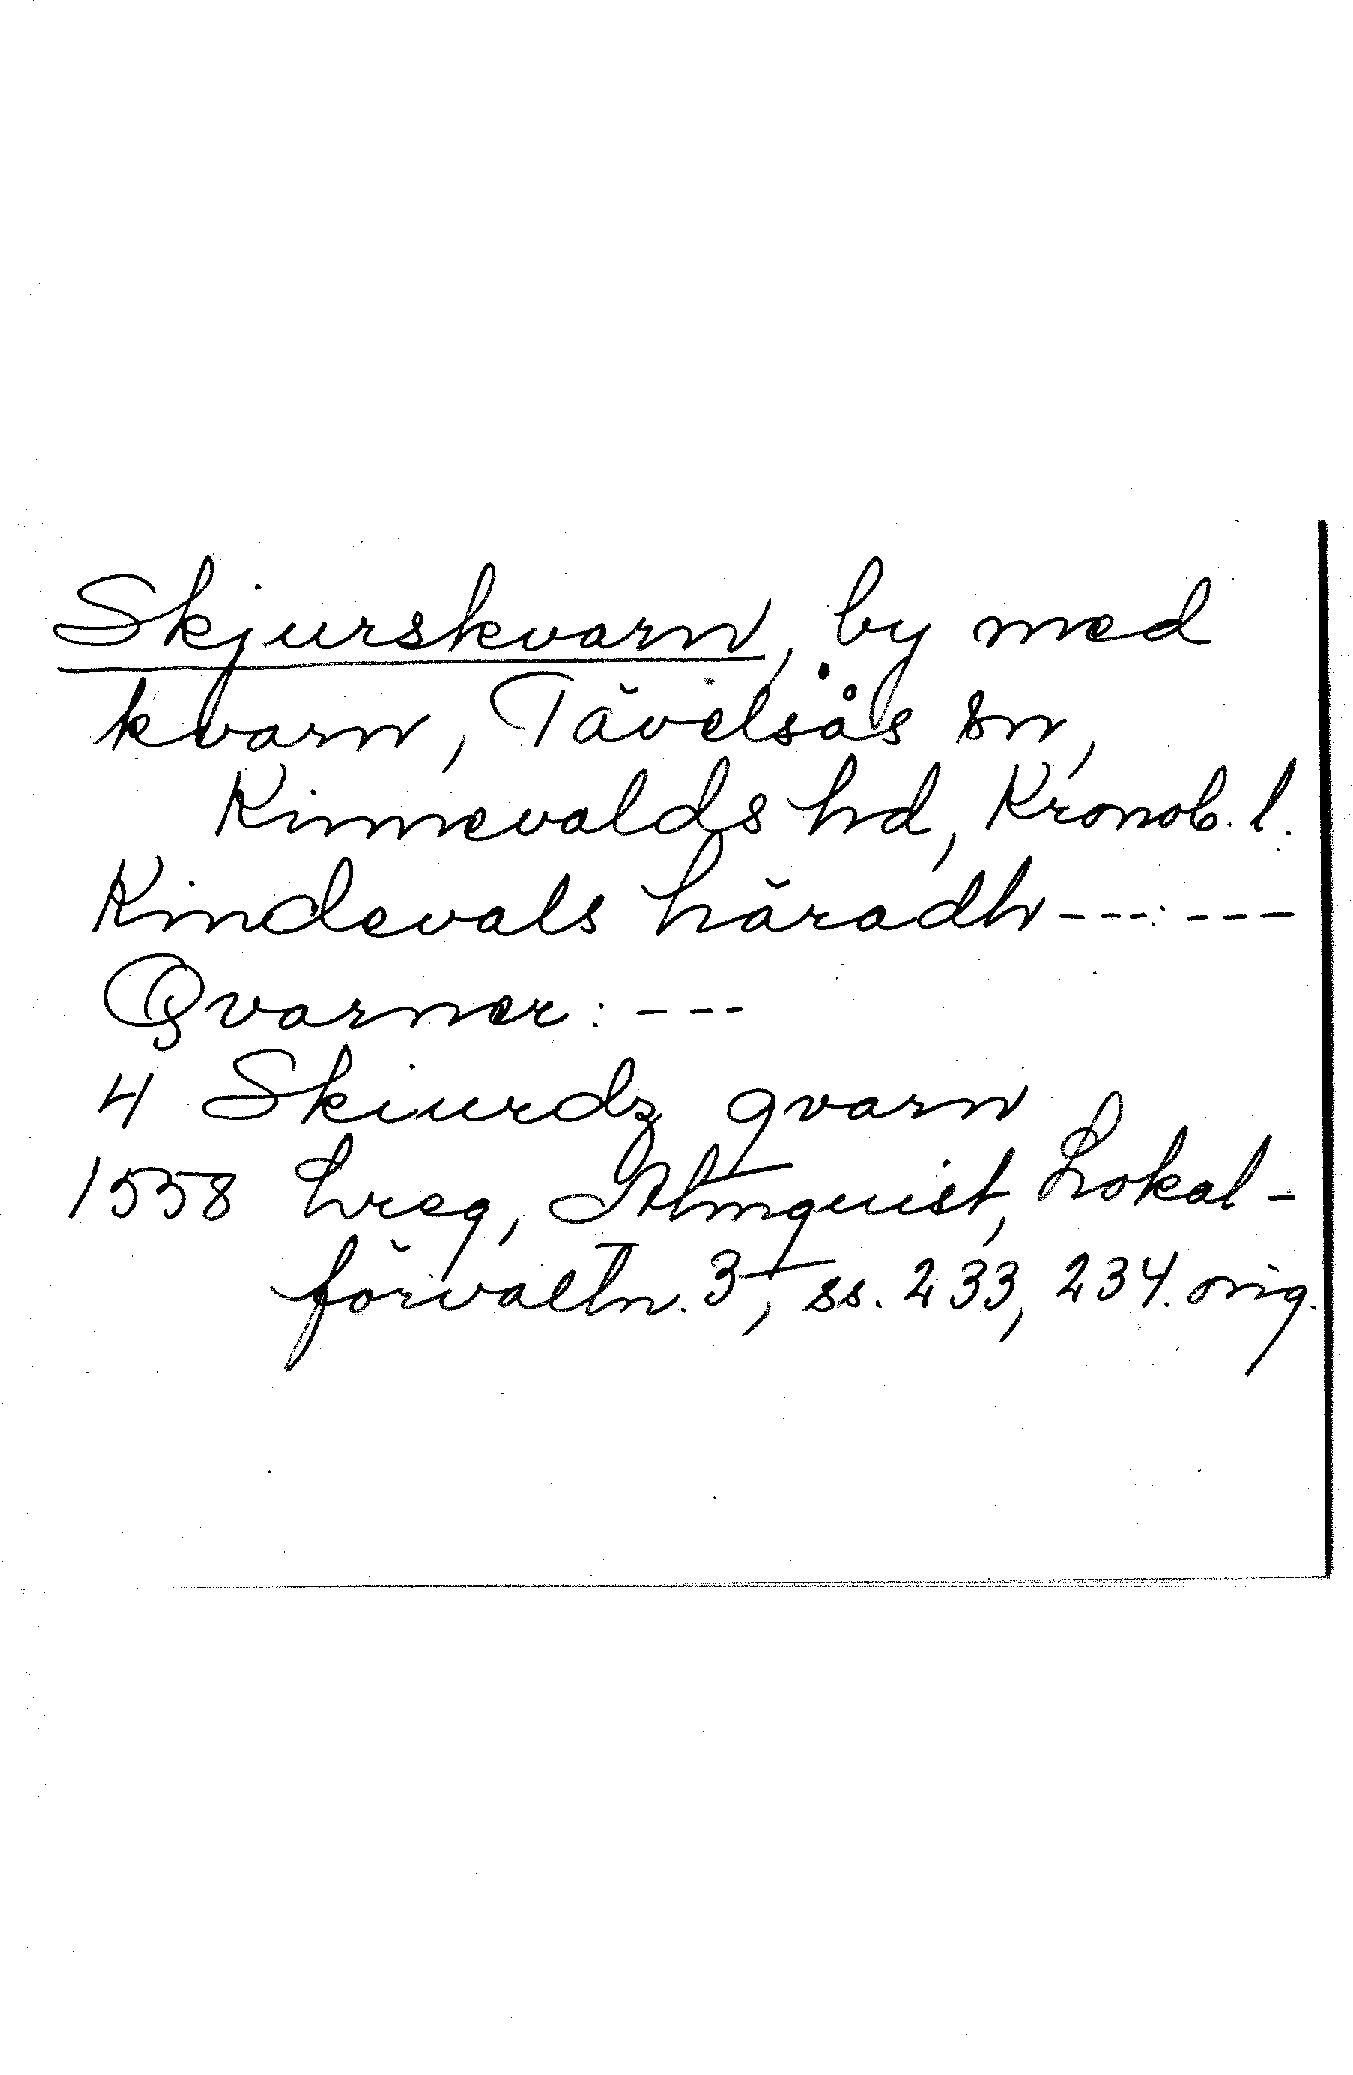 Skjurskvarn, by med
kvarn, Tävelsås sn,
Kinnevalds hd, Kronob. l.
Kindevals häradh---:---
Qvarner: ---
4 Skiurdz qvarn
1558 Lreg, Almquist, Lokal-
förvaltn. 3, ss. 233, 234. orig.